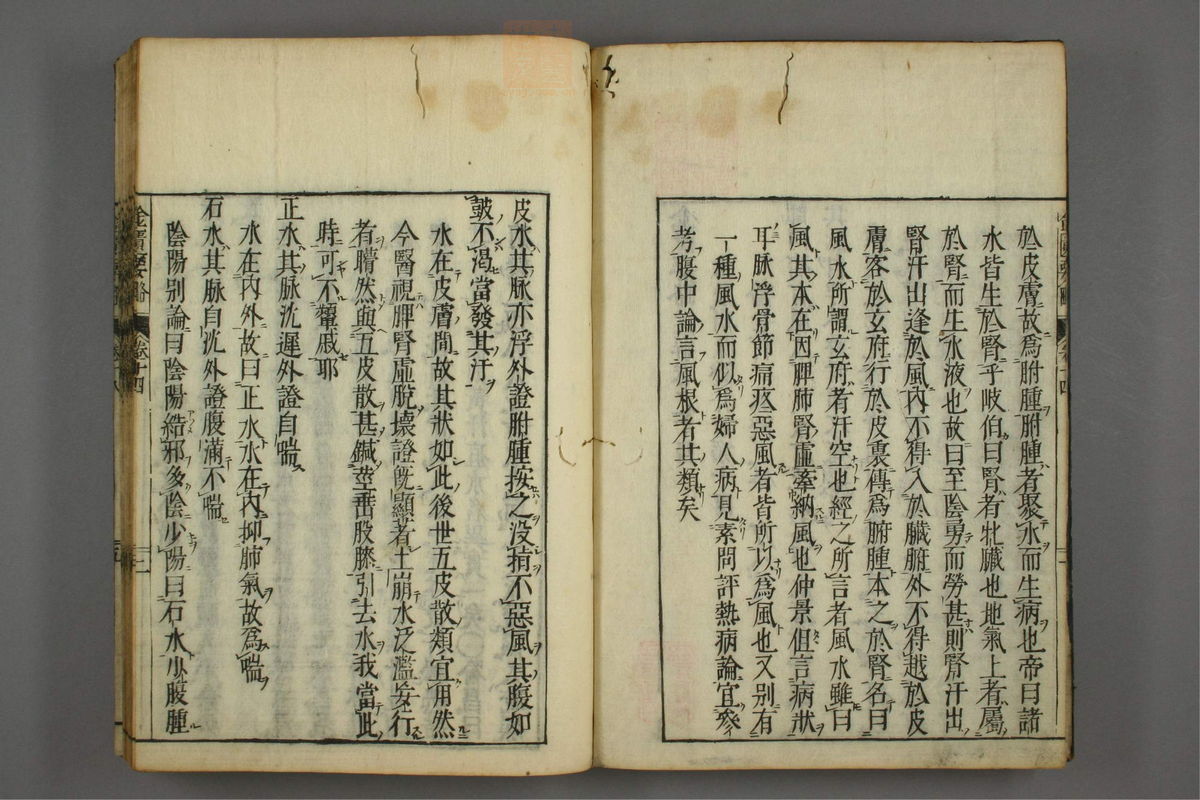 於皮膚故爲胕腫胕腫者聚水而生病也帝曰諸
水皆生於腎乎岐伯曰腎者牝臟也地氣上者屬
於腎而生水液也故曰至陰勇而勞甚則腎汗出
腎汗出逢於風內不得入於臟腑外不得越於皮
膚客於玄府行於皮裏傳爲胕腫本之於腎名曰
風水所謂玄府者汗空也經之所言者風水雖曰
風其本在因脾肺腎虛棄納風也仲景但言病狀
耳脉浮骨節痛疼惡風者皆所以爲風也又別有
一種風水而似爲婦人病見素問評熱病論宜參
考腹中論言風根者共類矣
皮水其脉亦浮外證胕腫按之没指不惡風其腹如
皷不渴當發其汗
水在皮膚間故其狀如此後世五皮散類宜用然
今醫視脾腎虛脫壞證旣顯著土崩水泛濫妄行
者瞢然與五皮散甚鍼莖垂股膝引去水我當此
時可不顰戚耶
正水其脉沈遲外證自喘
水在內外故曰正水水在內抑肺氣故爲喘
石水其脉自沈外證腹滿不喘
陰陽別論曰陰陽結邪多陰少陽曰石水少腹腫
金匱要略
卷十四
二